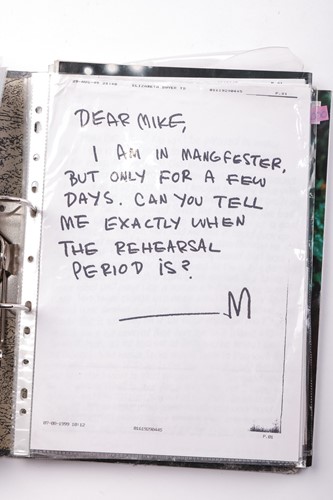 DEAR MIKE,
I AM IN MANGFESTER,
BUT ONLY FOR A FEW
DAYS. CAN YOU TELL
ME EXACTLY WHEN
THE REHEARSAL
PERIOD IS?
M
P.01